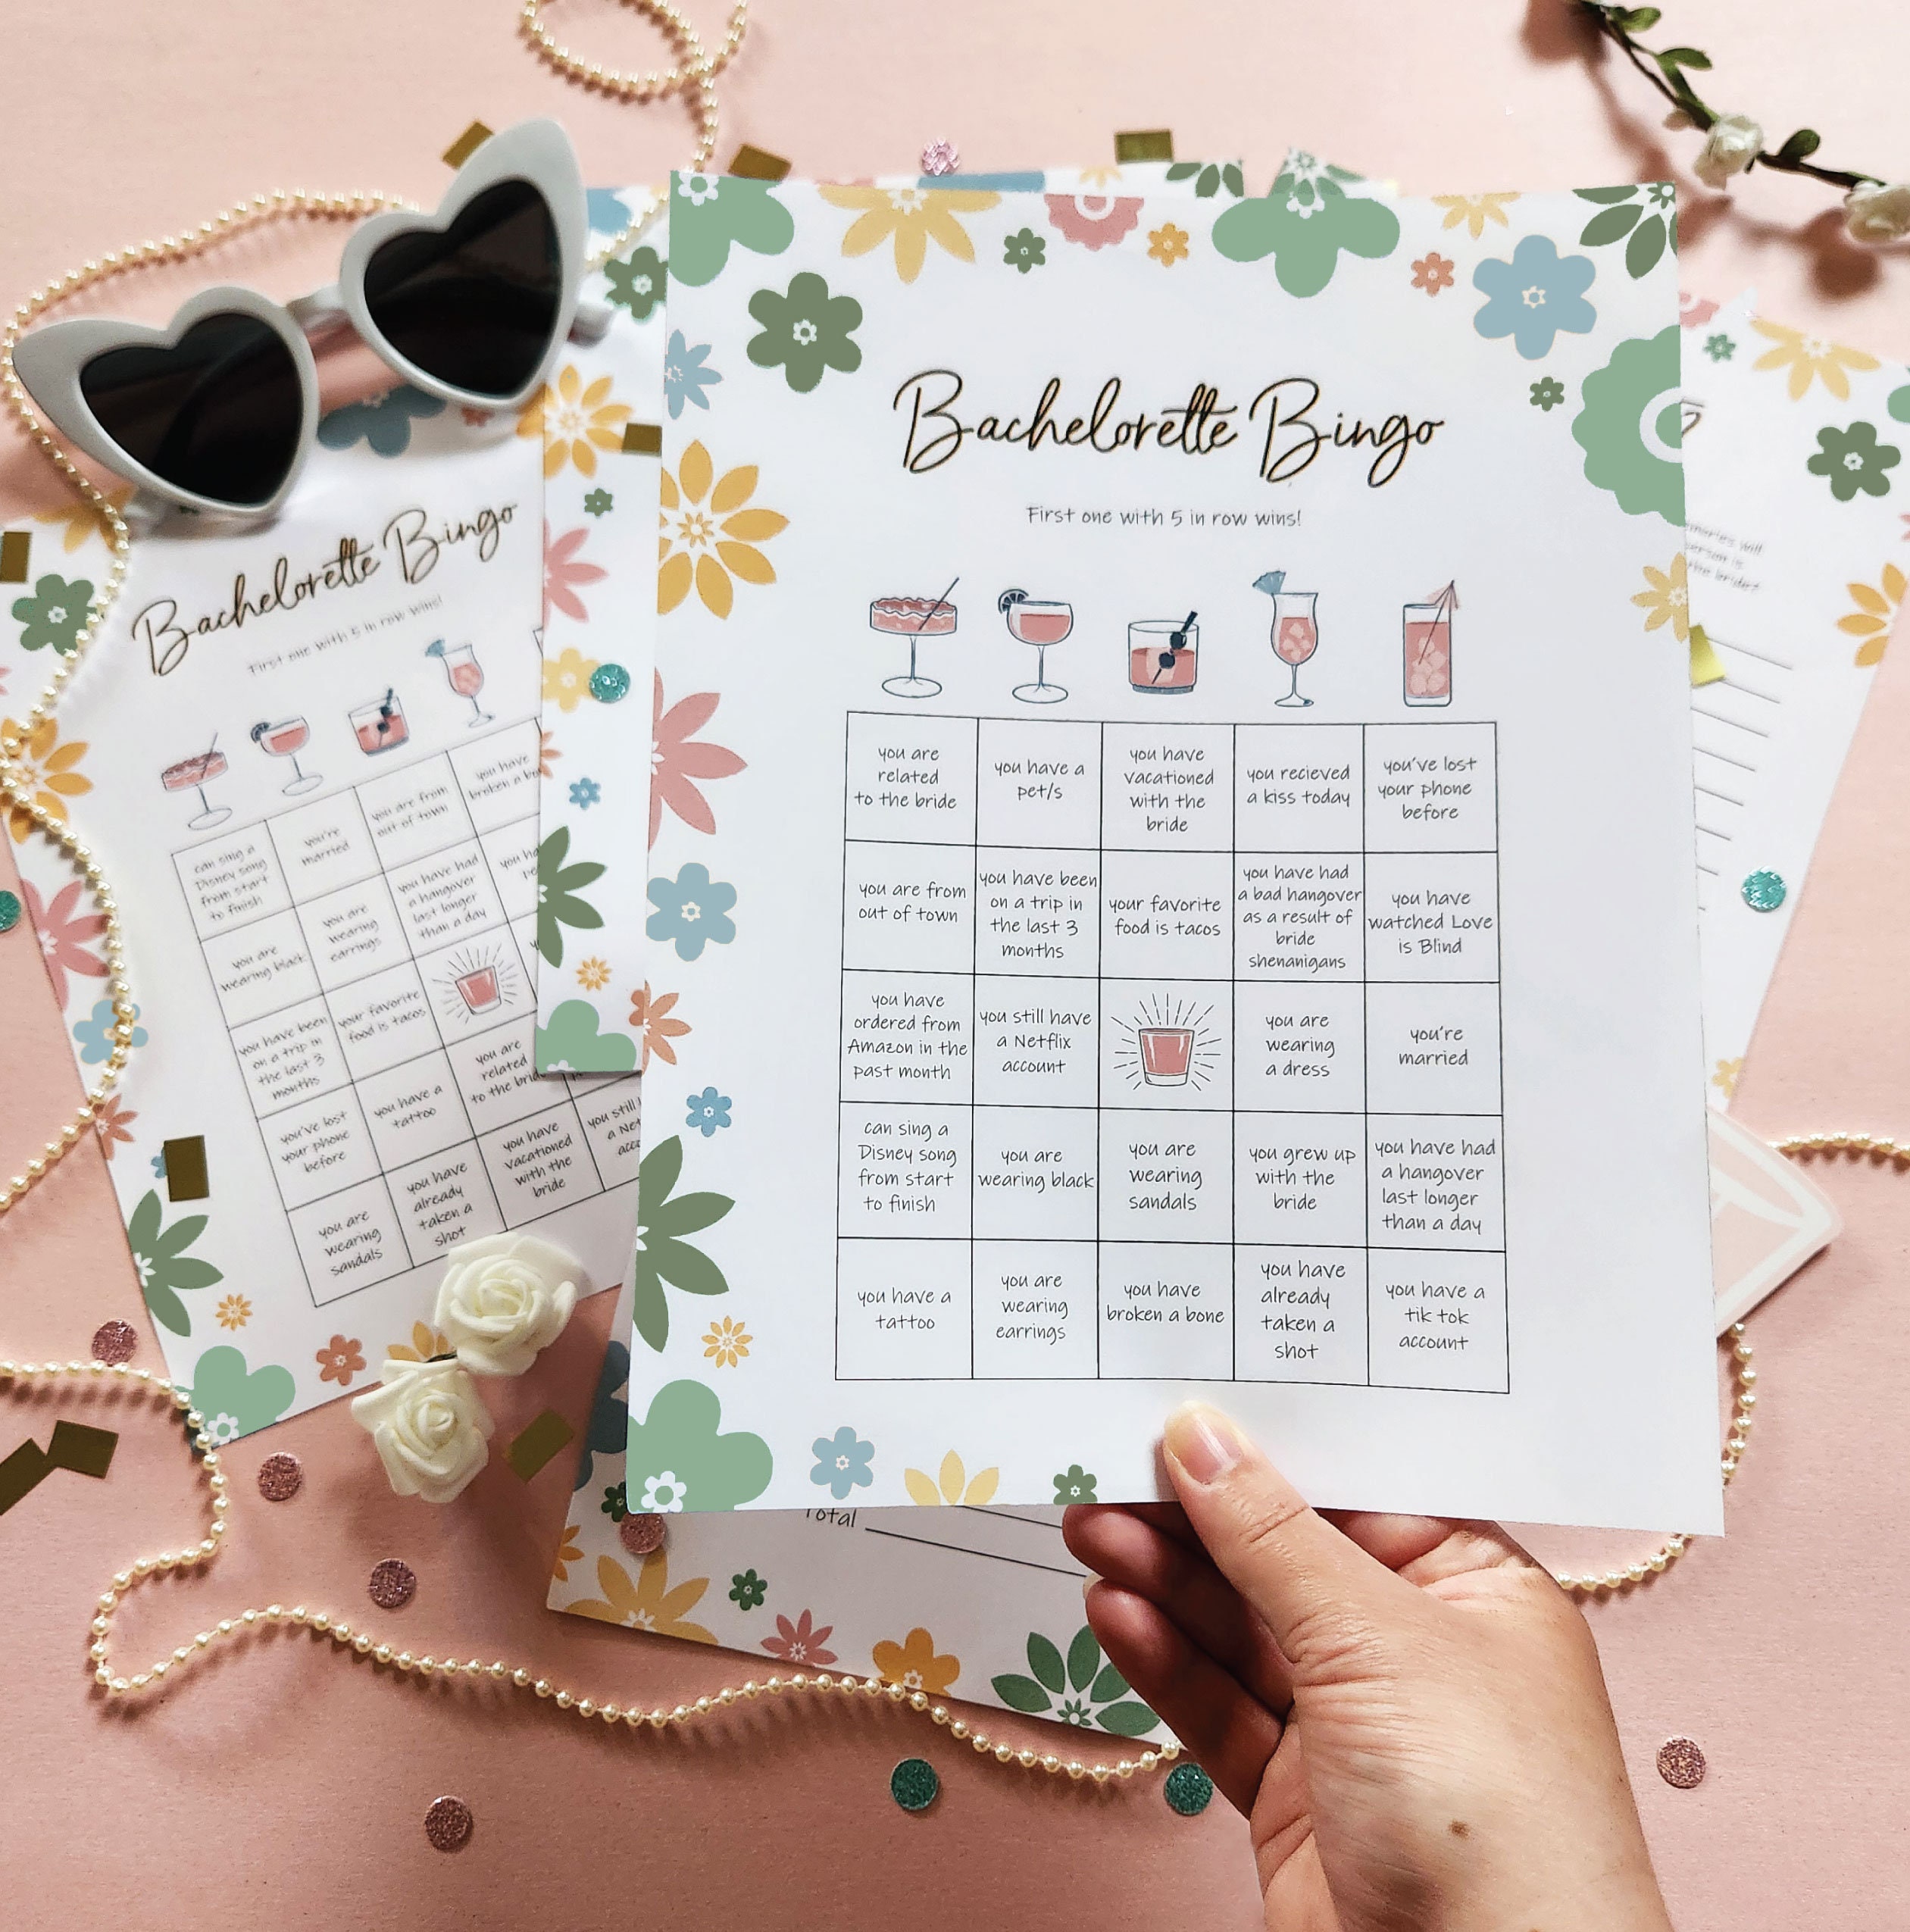 Bachelorette Bingo
First one with 5 in row wins!
you are
related
to the bride
you have a
pet/s
you have
vacationed
with the
bride
you recieved
a kiss today
you've lost
your phone
before
you are from
out of town
you have been
on a trip in
the last 3
months
your favorite
food is tacos
you have had
a bad hangover
as a result of
bride
shenanigans
you have
watched Love
is Blind
you have
ordered from
Amazon in the
past month
you still have
a Netflix
account
you are
wearing
a dress
you're
married
can sing a
Disney song
from start
to finish
you are
wearing black
you are
wearing
sandals
you grew up
with the
bride
you have had
a hangover
last longer
than a day
you have a
tattoo
you are
wearing
earrings
you have
broken a bone
you have
already
taken a
shot
you have a
tik tok
account
Bachelorette Bingo
First one with 5 in row wins!
can sing a
Disney song
from start
to finish
you're
married
you are from
out of town
you have
broken a
you are
wearing black
you are
wearing
earrings
you have had
a hangover
last longer
than a day
you
you have been
on a trip in
the last 3
months
your favorite
food is tacos
you've lost
your phone
before
you have a
tattoo
you are
related
to the
you are
wearing
sandals
you have
already
taken a
shot
you have
vacationed
with the
bride
you still
a
will
is
the bride?
Total